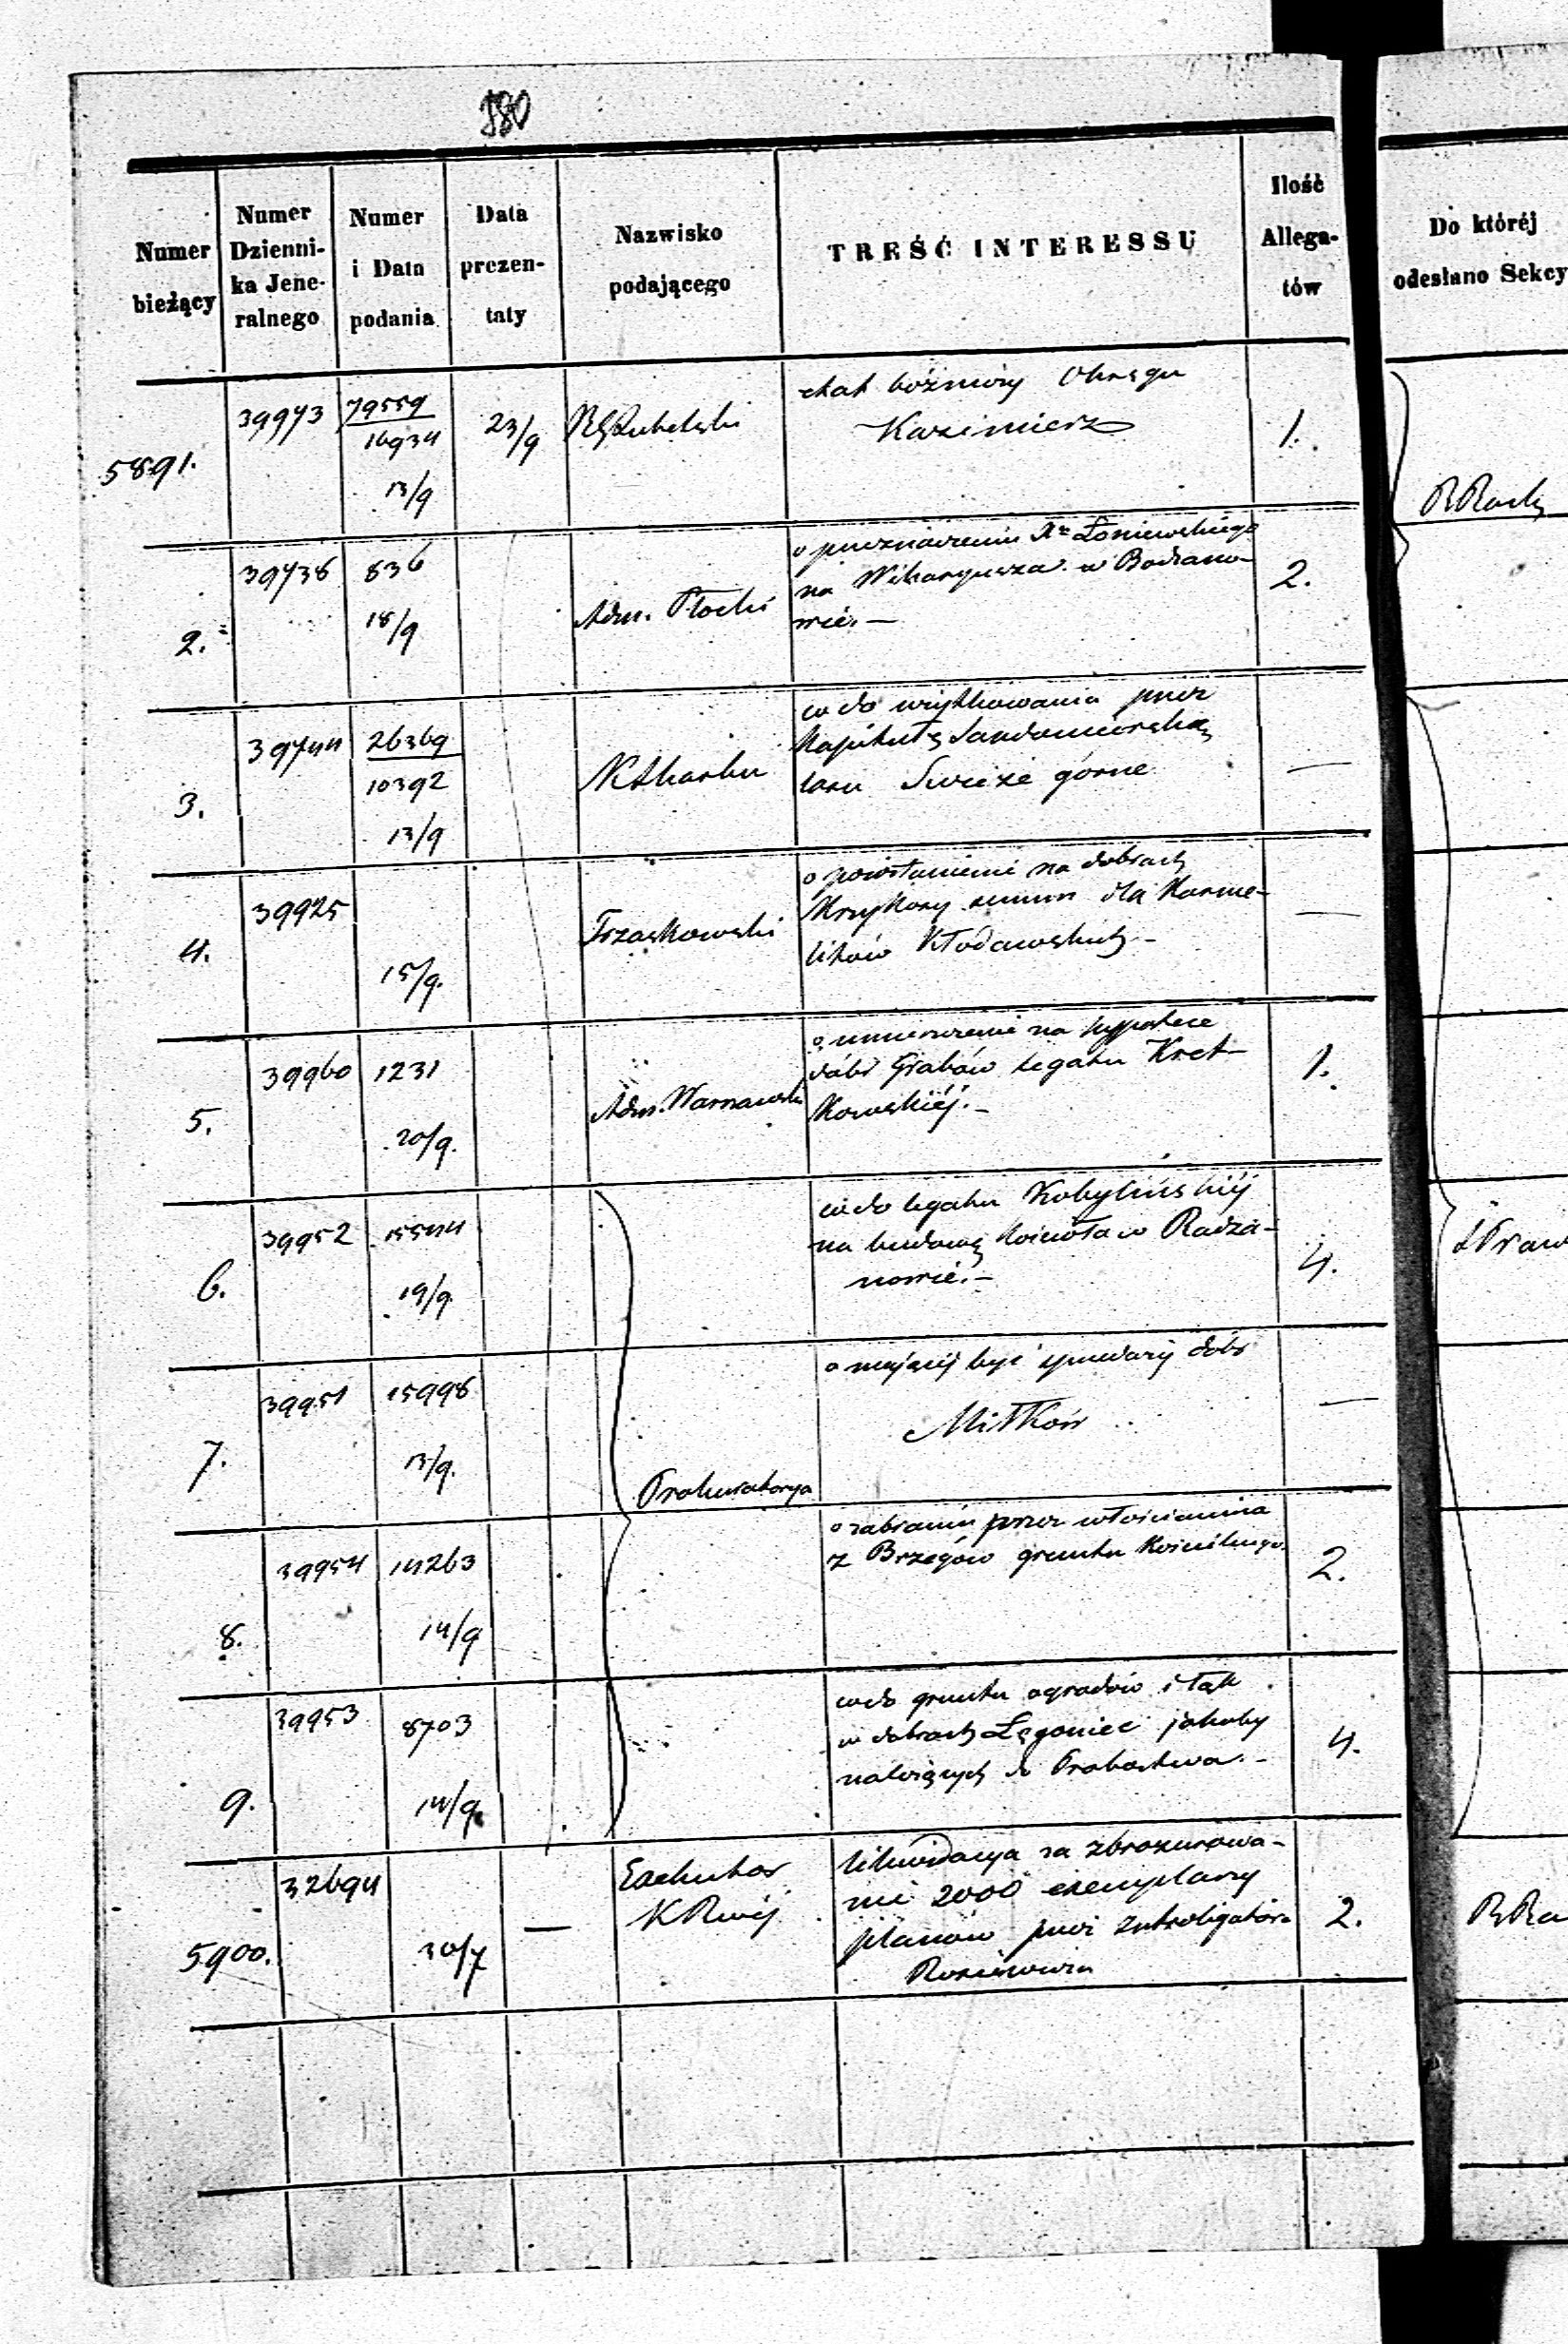 580
Numer bieżący | Numer Dzienni-ka Jene-ralnego | Numer i Data podania | Data prezen-taty | Nazwisko podającego | TREŚĆ INTERESSU | Ilość Allega-tów | Do któréj odesłano Sekcy
5891. | 39943 | 79559 16934 13/9 | 23/9 | RG Lubelski | etat bóżniczy Okręgu
Kazimierz | 1.
2. | 39938 | 836 18/9 | Adm. Płocki | o przeznaczeniu Xa Łoniewskiego
na Wikaryusza w Bodzano-
wie. — | 2.
3. | 39944 | 26369 10392 13/9 | K Skarbu | co do użytkowania przez
Kapitułę Sandomierską
lasu Świeże górne | —
4. | 39925 | 15/9. | Trzaskowski | o powstanienie na dobrach
Krzykosy summ dla Karme-
litów Kłodawskich — | —
5. | 39960 | 1231 20/9. | Adm. Warszawski | o umieszczenie na hypotece
dóbr Grabów legatu Kret-
kowskiéj. — | 1.
6. | 39952 | 15544 19/9 | co do legatu Kobylińskiéj
na budowę kościoła w Radza-
nowie. — | 4.
7. | 39951 | 15998 13/9. | Prokuratorya | o mającéj być sprzedaży dóbr
Miłków | —
8. | 39954 | 14263 14/9 | o zabraniu przez włościanina
z Brzegów gruntu kościelnego. | 2.
9. | 39953 | 8703 14/9. | co do gruntu ogrodów i łąk
w dobrach Łęgonice jakoby
należących do Probostwa. — | 4.
5900. | 32694 | 30/7 | — | Exekutor
K R | likwidacya za zbroszurowa-
nie 2000 exemplarzy
planów przez Introligatora | 2.